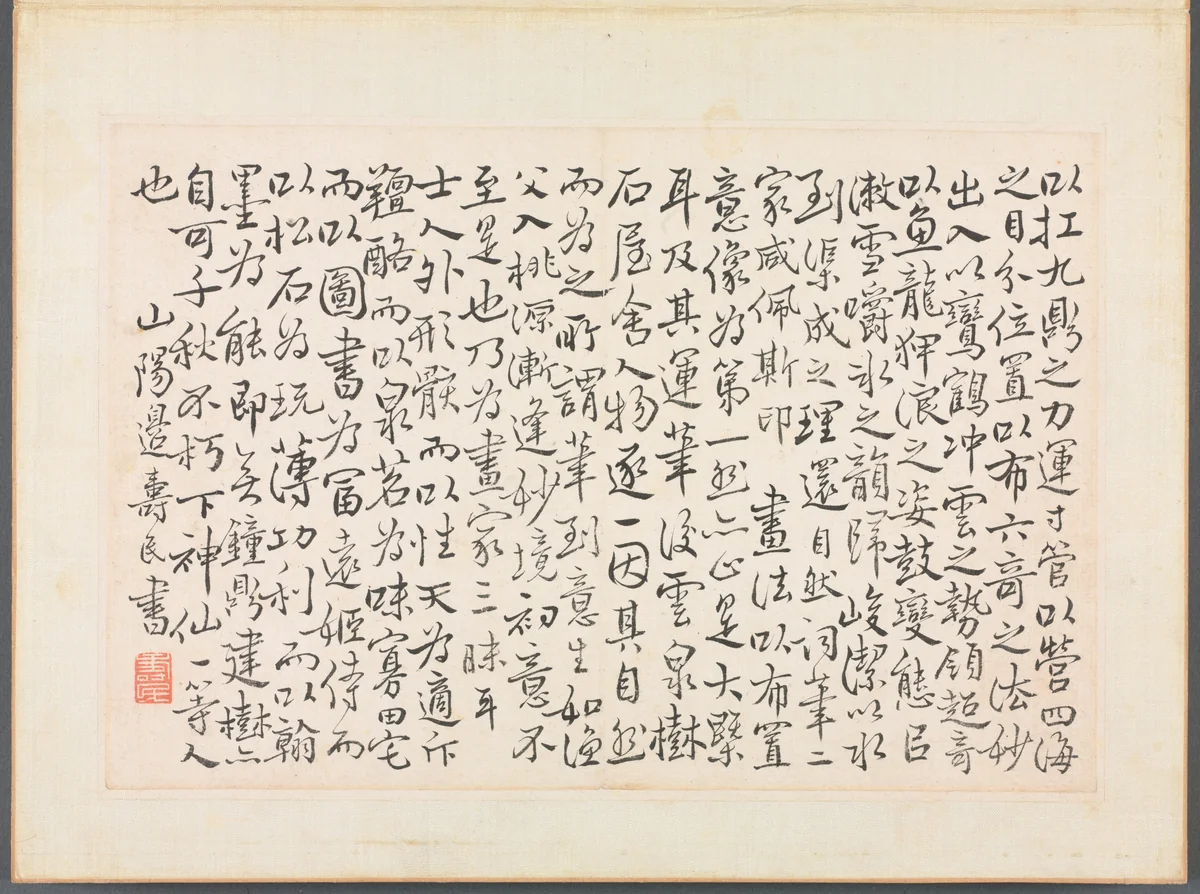 以扛九鼎之力運寸管以營四海
之目分位置以布六奇之法妙
出入以鸞鶴冲雲之勢領超奇
以魚龍狎浪之姿鼓變態以
漱雪嚼冰之韻歸峻潔以水
到渠成之理還自然詞筆二
家咸佩斯印 畫法以布置
意像為第一然亦止是大槩
耳及其運筆後雲泉樹
石屋舍人物逐一因其自然
而為之所謂筆到意生如漁
父入桃源漸逢妙境初意不
至是也乃為畫家三昧耳
士人外形骸而以性天為適斥
羶酪而以泉茗為味寡田宅
而以圖書為富遠姬侍而
以松石為玩薄功利而以翰
墨為能即無鐘鼎建樹亦
自可千秋不朽下神仙一等人
也 山陽邊壽民書
壽民